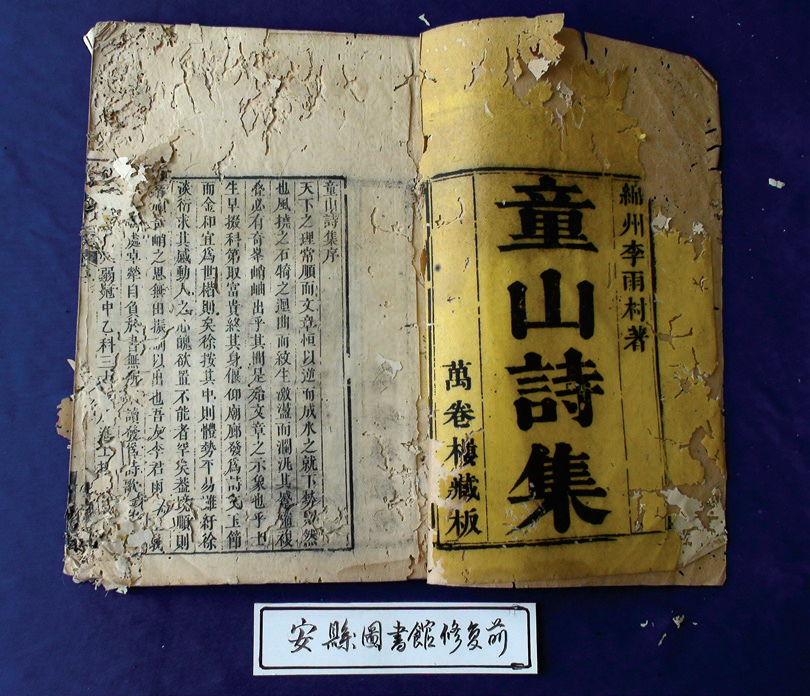 綿州李雨村著
童山詩集
萬卷樓藏板
童山詩集序
天下之理常順而文章恒以逆而成水之就下勢固然
也風撓之石犄之邅曲而紋生激盪而瀾洮其層巒複
疊必有奇峯峭岫出乎其間是殆文章之示象也乎
生早掇科第取富貴終其身偃仰廟廊發為詩文玉節
而金和宜為世楷則矣徐按其中則體勢不易雖紆徐
談衍求其感動人之心魄欲置不能者罕矣蓋境順則
峭之思無由振
以出也吾友李君雨
處卓犖自負於書無所
讀發為詩歌
弱冠中乙科三
進士
安縣圖書館修复前